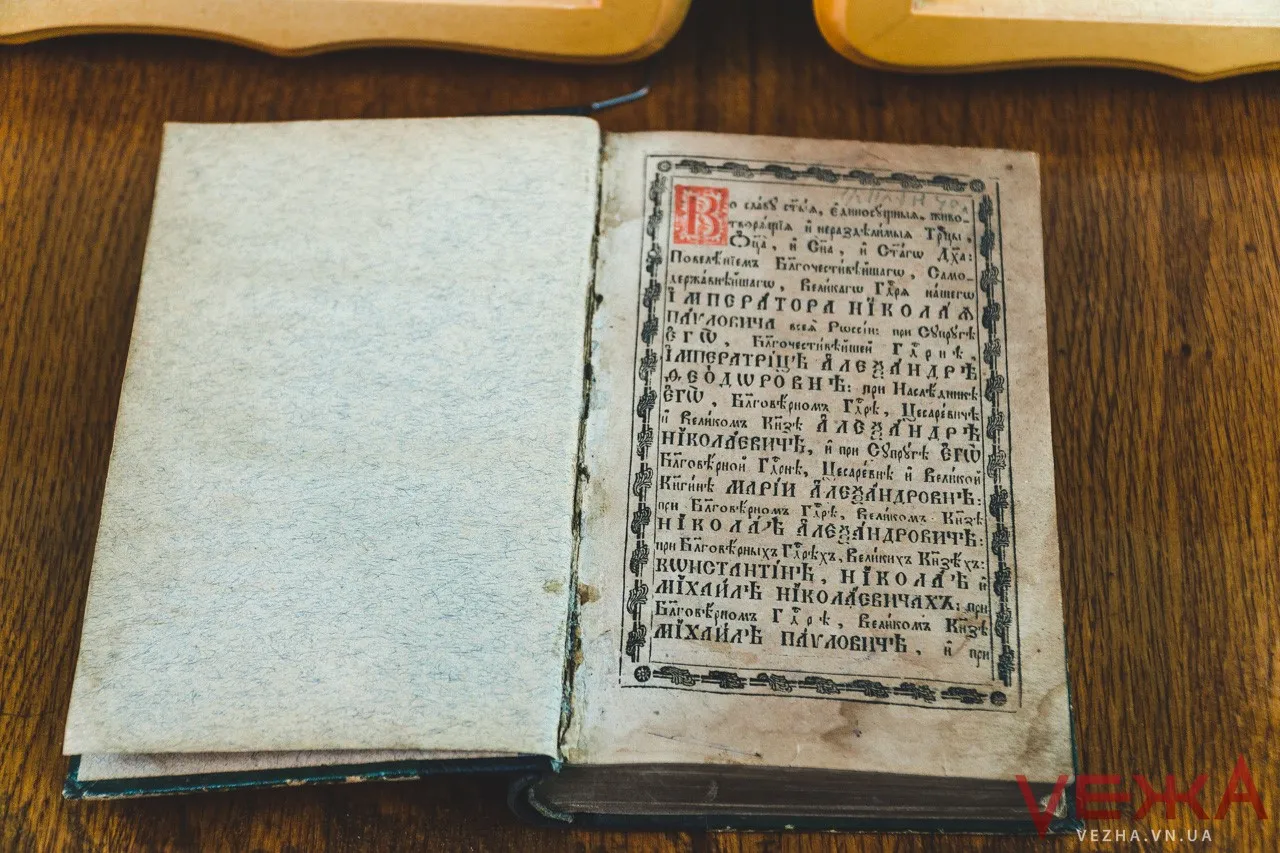 Во славу ст҃ыѧ, є҆диносꙋщныѧ, живо-
творѧщїѧ и҆ нераздѣлимыѧ Трⷪ҇цы,
Ѻ҆ц҃а̀, и҆ Сн҃а, и҆ Ст҃агѡ Дх҃а:
Повелѣнїемъ Бл҃гочести́вѣйшагѡ, Само-
держа́внѣйшагѡ, Вели́кагѡ Гдⷭ҇рѧ на́шегѡ
І҆МПЕРА́ТОРА НІКОЛА́Ѧ
ПА́ѴЛОВИЧА всеѧ̀ Рѡссі́и: при Сꙋпрꙋ́гѣ
Є҆ГѠ̀, Бл҃гочести́вѣйшей Гдⷭ҇рнѣ,
І҆МПЕРАТРІ́ЦѢ А҆ЛЕѮА́НДРѢ
Ѳ҆ЕО́ДѠРОВНѢ: при Наслѣ́дникѣ
Є҆ГѠ̀, Бл҃говѣ́рномъ Гдⷭ҇рѣ, Цесаре́вичѣ
и҆ Вели́комъ Кн҃зѣ А҆ЛЕѮА́НДРѢ
НІКОЛА́ЕВИЧѢ, и҆ при Сꙋпрꙋ́гѣ Є҆ГѠ̀
Бл҃говѣ́рной Гдⷭ҇рнѣ, Цесаре́внѣ и҆ Вели́кой
Кн҃ги́нѣ МАРІ́И А҆ЛЕѮА́НДРОВНѢ:
при Бл҃говѣ́рномъ Гдⷭ҇рѣ, Вели́комъ Кн҃зѣ
НІКОЛА́Ѣ А҆ЛЕѮА́НДРОВИЧѢ:
при Бл҃говѣ́рныхъ Гдⷭ҇рѣхъ, Вели́кихъ Кн҃зѣ́хъ:
КѠНСТАНТІ́НѢ, НІКОЛА́Ѣ и҆
МІХАИ́ЛѢ НІКОЛА́ЕВИЧАХЪ: при
Бл҃говѣ́рномъ Гдⷭ҇рѣ, Вели́комъ Кн҃зѣ
МІХАИ́ЛѢ ПА́ѴЛОВИЧѢ, и҆ при
VEЖА
VEZHA.VN.UA